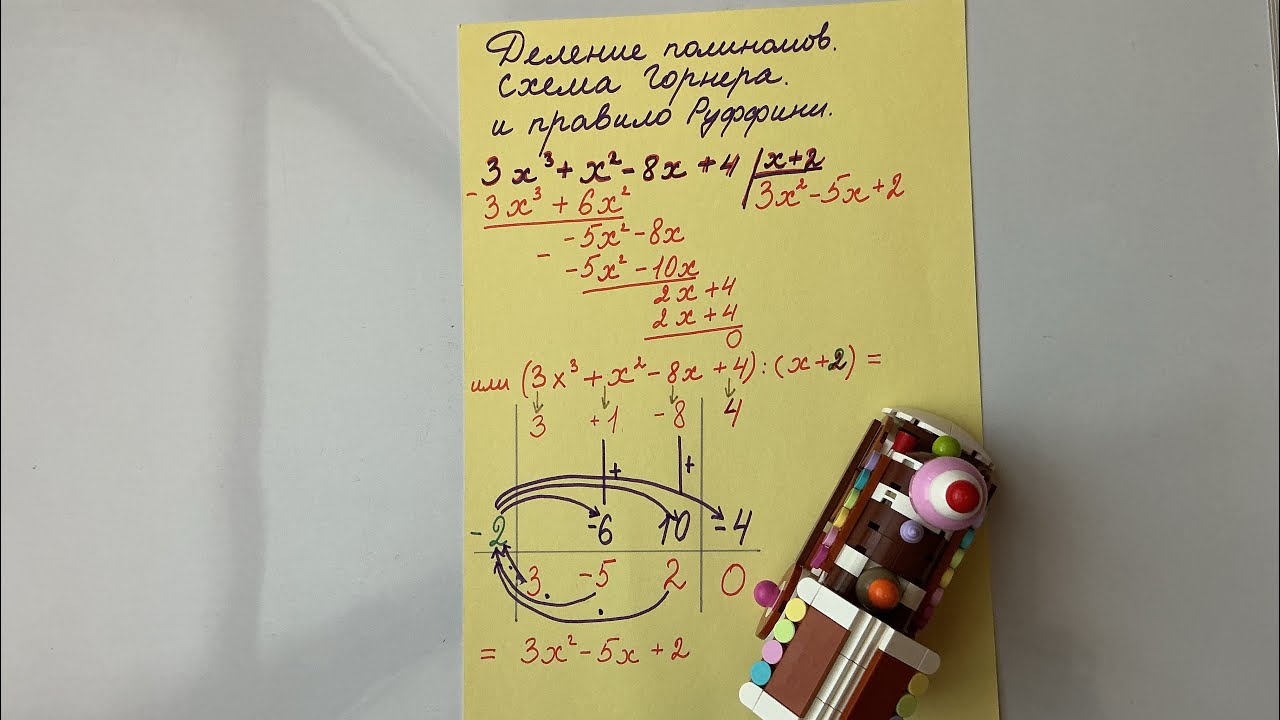 Деление полиномов.
Схема Горнера.
и правило Руффини.
3x³ + x² - 8x + 4 | x+2
- 3x³ + 6x² 3x² - 5x + 2
-5x² - 8x
- -5x² - 10x
2x + 4
2x + 4
0
или (3x³ + x² - 8x + 4) : (x+2) =
3 +1 -8 4
+ +
-2 -6 10 -4
3 -5 2 0
= 3x² - 5x + 2